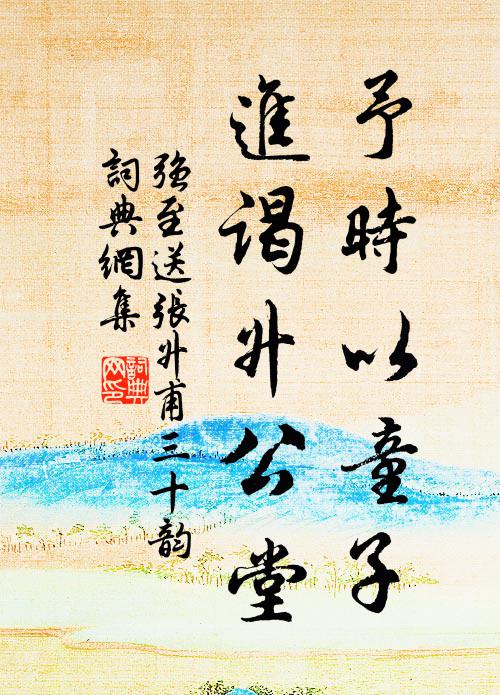 予時以童子
進謁升公堂
強至送張升甫三十韵
詞典網集
詞典
网印